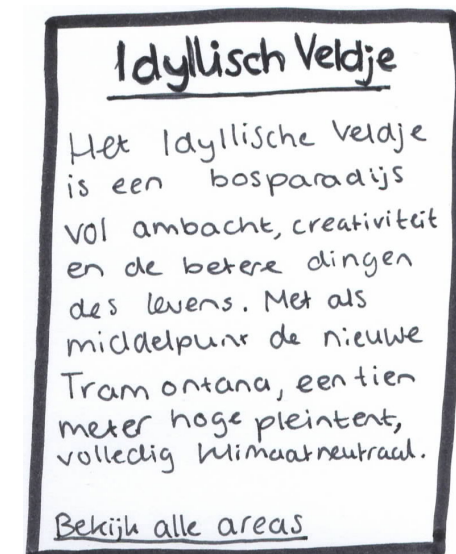 Idyllisch Veldje
Het Idyllische Veldje
is een bosparadijs
vol ambacht, creativiteit
en de betere dingen
des levens. Met als
middelpunt de nieuwe
Tramontana, een tien
meter hoge pleintent,
volledig klimaatneutraal.
Bekijk alle areas